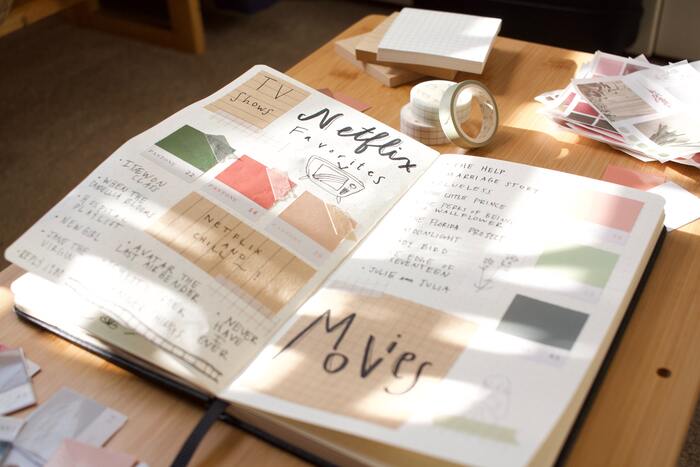 TV
Shows
Netflix
Favorites
PANTONE
ITAEWON
CLASS
• WHEN THE
CAMELLIA
PLAYLIST
• NEW GIRL
• JANE THE
VIRGIN
NETFLIX
AND
CHILL ~!
• AVATAR THE
LAST AIRBENDER
• NEVER
HAVE I
EVER
• THE HELP
MARRIAGE STORY
CLUELESS
LITTLE PRINCE
PERKS OF BEING
WALLFLOWER
FLORIDA PROJECT
MOONLIGHT
BIRD
EDGE OF
SEVENTEEN
• JULIE and JULIA
Movies